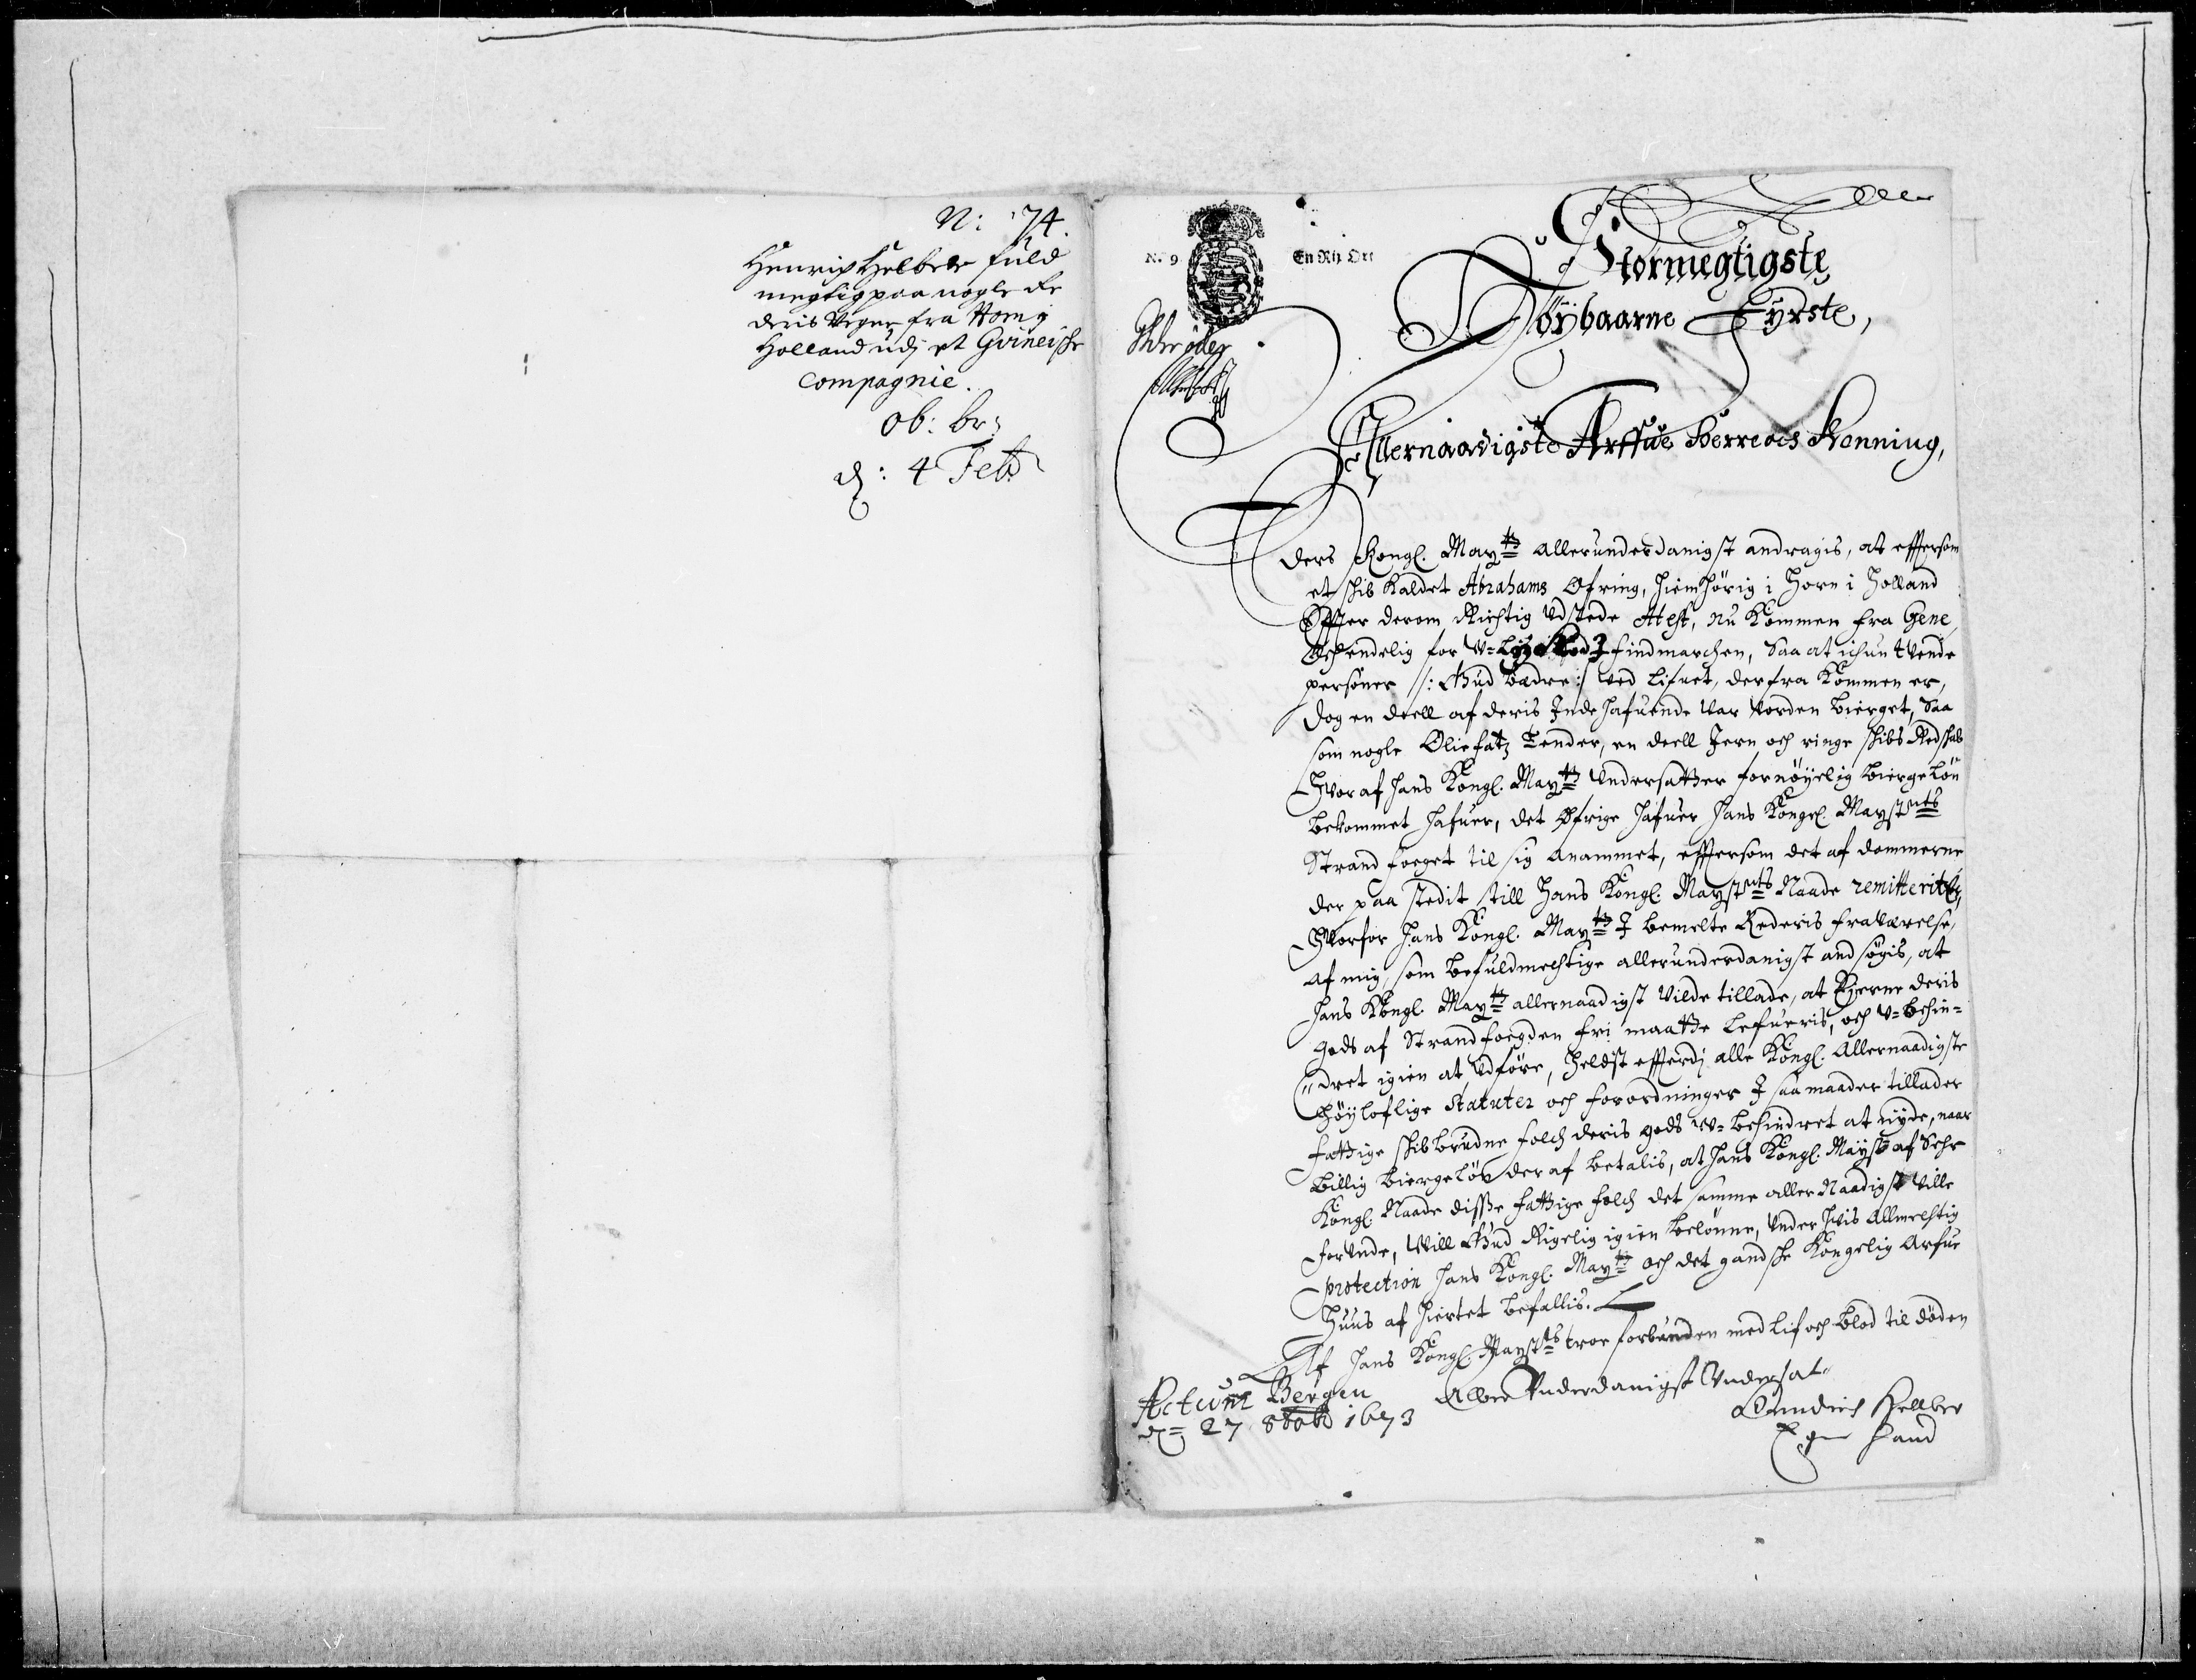 N: 74.
Henrich Helber fuld
megtig paa nogle Re
deris Vegne fra Horn j
Holland udj et Gvineische
Compagnie.
ob: br:
d: 4 Feb:
No 9
En Rix Ort
Stormegtigste
Höybaarne Fyrste,
Allernaadigste Arffue Herre oc Konning,
Eders Kongl. Maytt allerunderdanigst andragis, at effterson
et skib kaldet Abrahams Ofring, hiemhörig i Horn i Holland
Effter derom Richtig Udstede Atest, nu kommen fra Gene,
Och endelig for U-lyche J findmarchen, Saa at ichun tvende
personer /: Gud bædre :/ ved Lifuet, derfra kommen er,
dog en deell af deris Indehafuende var vorden bierget, saa
som nogle Oliefatz Tender, en deell Jern och ringe skibs Redskab
Hvoraf hans Kongl. Maytt Undersatter fornöyelig biergelön
bekommet hafuer, det Öfrige hafuer hans Kongl. Maystets
Strand foeget til sig anammet, effterson det af dommerne
der paa stedit till Hans Kongl. Maystets Naade remitterit er,
Hvorfor hans Kongl. Maytt J bemelte Rederis fraværelse,
af mig, som befuldmechtige allerunderdanigst and söges, at
hans Kongl. Maytt allernaadigst vilde tillade, at Eyerne deris
gods af Strandfoegden fri maatte lefueris, och U-behin-
dret igien at udföre, heldst effterdj alle Kongl. Allernaadigste
höyloflige Statuter och forordninger J saa maader tillader
fattige skibbrudne folch deris gods U-behindret at nyde, naar
billig biergelön der af betalis, at hans Kongl. Mayst af
Kongl. Naade disse fattige folch det samme aller Naadigst ville
forunde, Vill Gud Rigelig igien belönne, Under hvis Allmechtig
protection hans Kongl. Maytt och det gandske Kongelig Arfue
Huus af hiertet befallis.
Af hans Kongl. Maystts troe forbunden med lif och blod til döden
Actum Bergen
d= 27 8bbr 1673
Aller Underdanigst Undersat
Henderich Hellber
Egen Haand